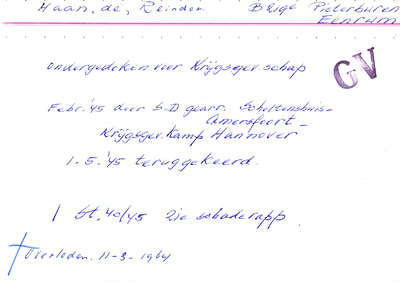 Haan, de, Reinder. Brige Pieterburen
Eenrum
GV
ondergedoken voor Krijgsgev.schap
Febr.'45 door S.D gearr. Scholtenshuis-
Amersfoort-
Krijgsgev.Kamp Hannover
1-5-'45 teruggekeerd.
St. 40/45 zie schaderapp.
Overleden. 11-3-1964